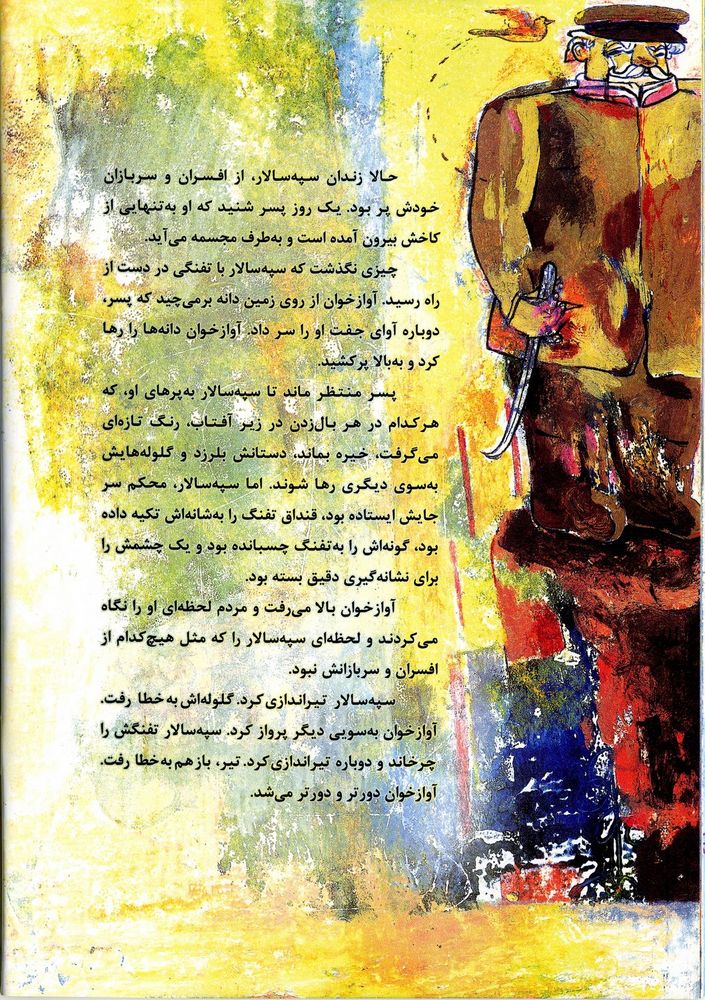 حالا زندان سپه‌سالار، از افسران و سربازان
خودش پر بود. یک روز پسر شنید که او به‌تنهایی از
کاخش بیرون آمده است و به‌طرف مجسمه می‌آید.
چیزی نگذشت که سپه‌سالار با تفنگی در دست از
راه رسید. آوازخوان از روی زمین دانه برمی‌چید که پسر،
دوباره آوای جفت او را سر داد. آوازخوان دانه‌ها را رها
کرد و به‌بالا پرکشید.
پسر منتظر ماند تا سپه‌سالار به‌پرهای او، که
هرکدام در هر بال‌زدن در زیر آفتاب، رنگ تازه‌ای
می‌گرفت، خیره بماند، دستانش بلرزد و گلوله‌هایش
به‌سوی دیگری رها شوند. اما سپه‌سالار، محکم سر
جایش ایستاده بود، قنداق تفنگ را به‌شانه‌اش تکیه داده
بود، گونه‌اش را به‌تفنگ چسبانده بود و یک چشمش را
برای نشانه‌گیری دقیق بسته بود.
آوازخوان بالا می‌رفت و مردم لحظه‌ای او را نگاه
می‌کردند و لحظه‌ای سپه‌سالار را که مثل هیچ‌کدام از
افسران و سربازانش نبود.
سپه‌سالار تیراندازی‌کرد. گلوله‌اش به‌خطا رفت.
آوازخوان به‌سویی دیگر پرواز کرد. سپه‌سالار تفنگش را
چرخاند و دوباره تیراندازی‌کرد. تیر، باز هم به‌خطا رفت.
آوازخوان دورتر و دورتر می‌شد.